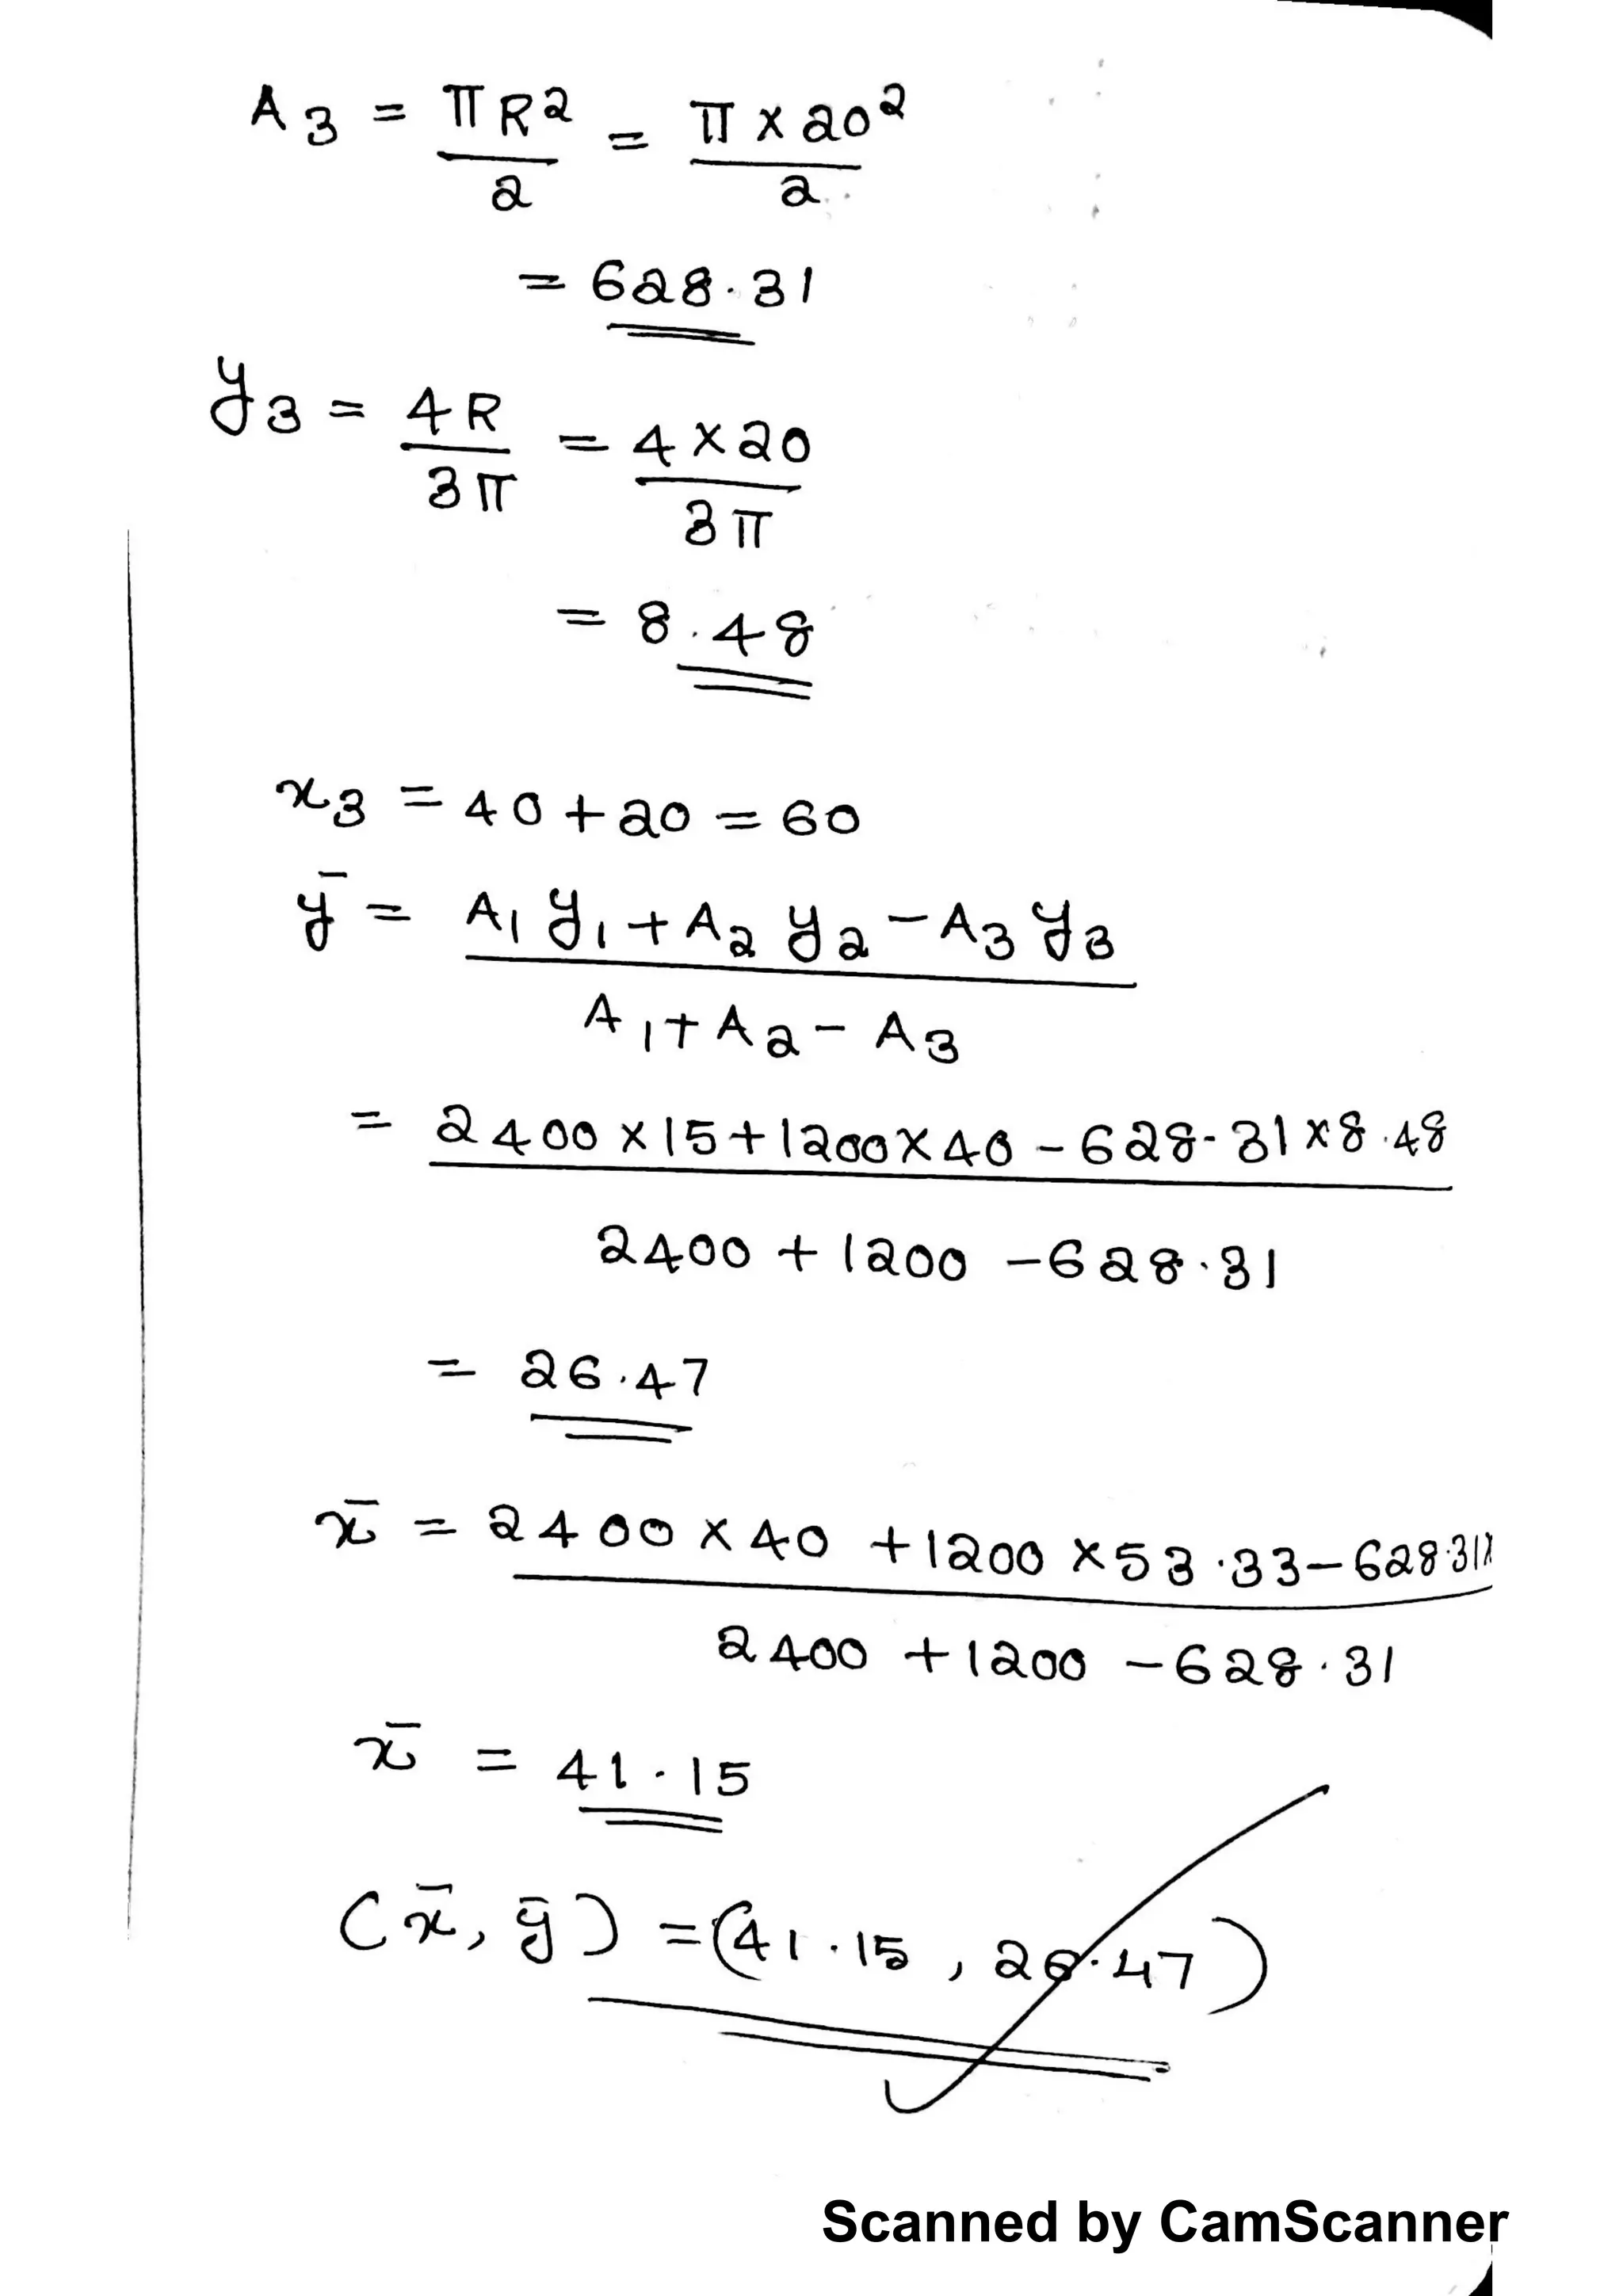 A3 = πR2 / 2 = π × 20² / 2
= 628.31
y3 = 4R / 3π = 4 × 20 / 3π
= 8.48
x3 = 40 + 20 = 60
ȳ = A1 y1 + A2 y2 - A3 y3 / A1 + A2 - A3
= 2400 × 15 + 1200 × 40 - 628.31 × 8.48 / 2400 + 1200 - 628.31
= 26.47
x̄ = 2400 × 40 + 1200 × 53.33 - 628.31 × / 2400 + 1200 - 628.31
x̄ = 41.15
(x̄, ȳ) = (41.15, 26.47)
Scanned by CamScanner